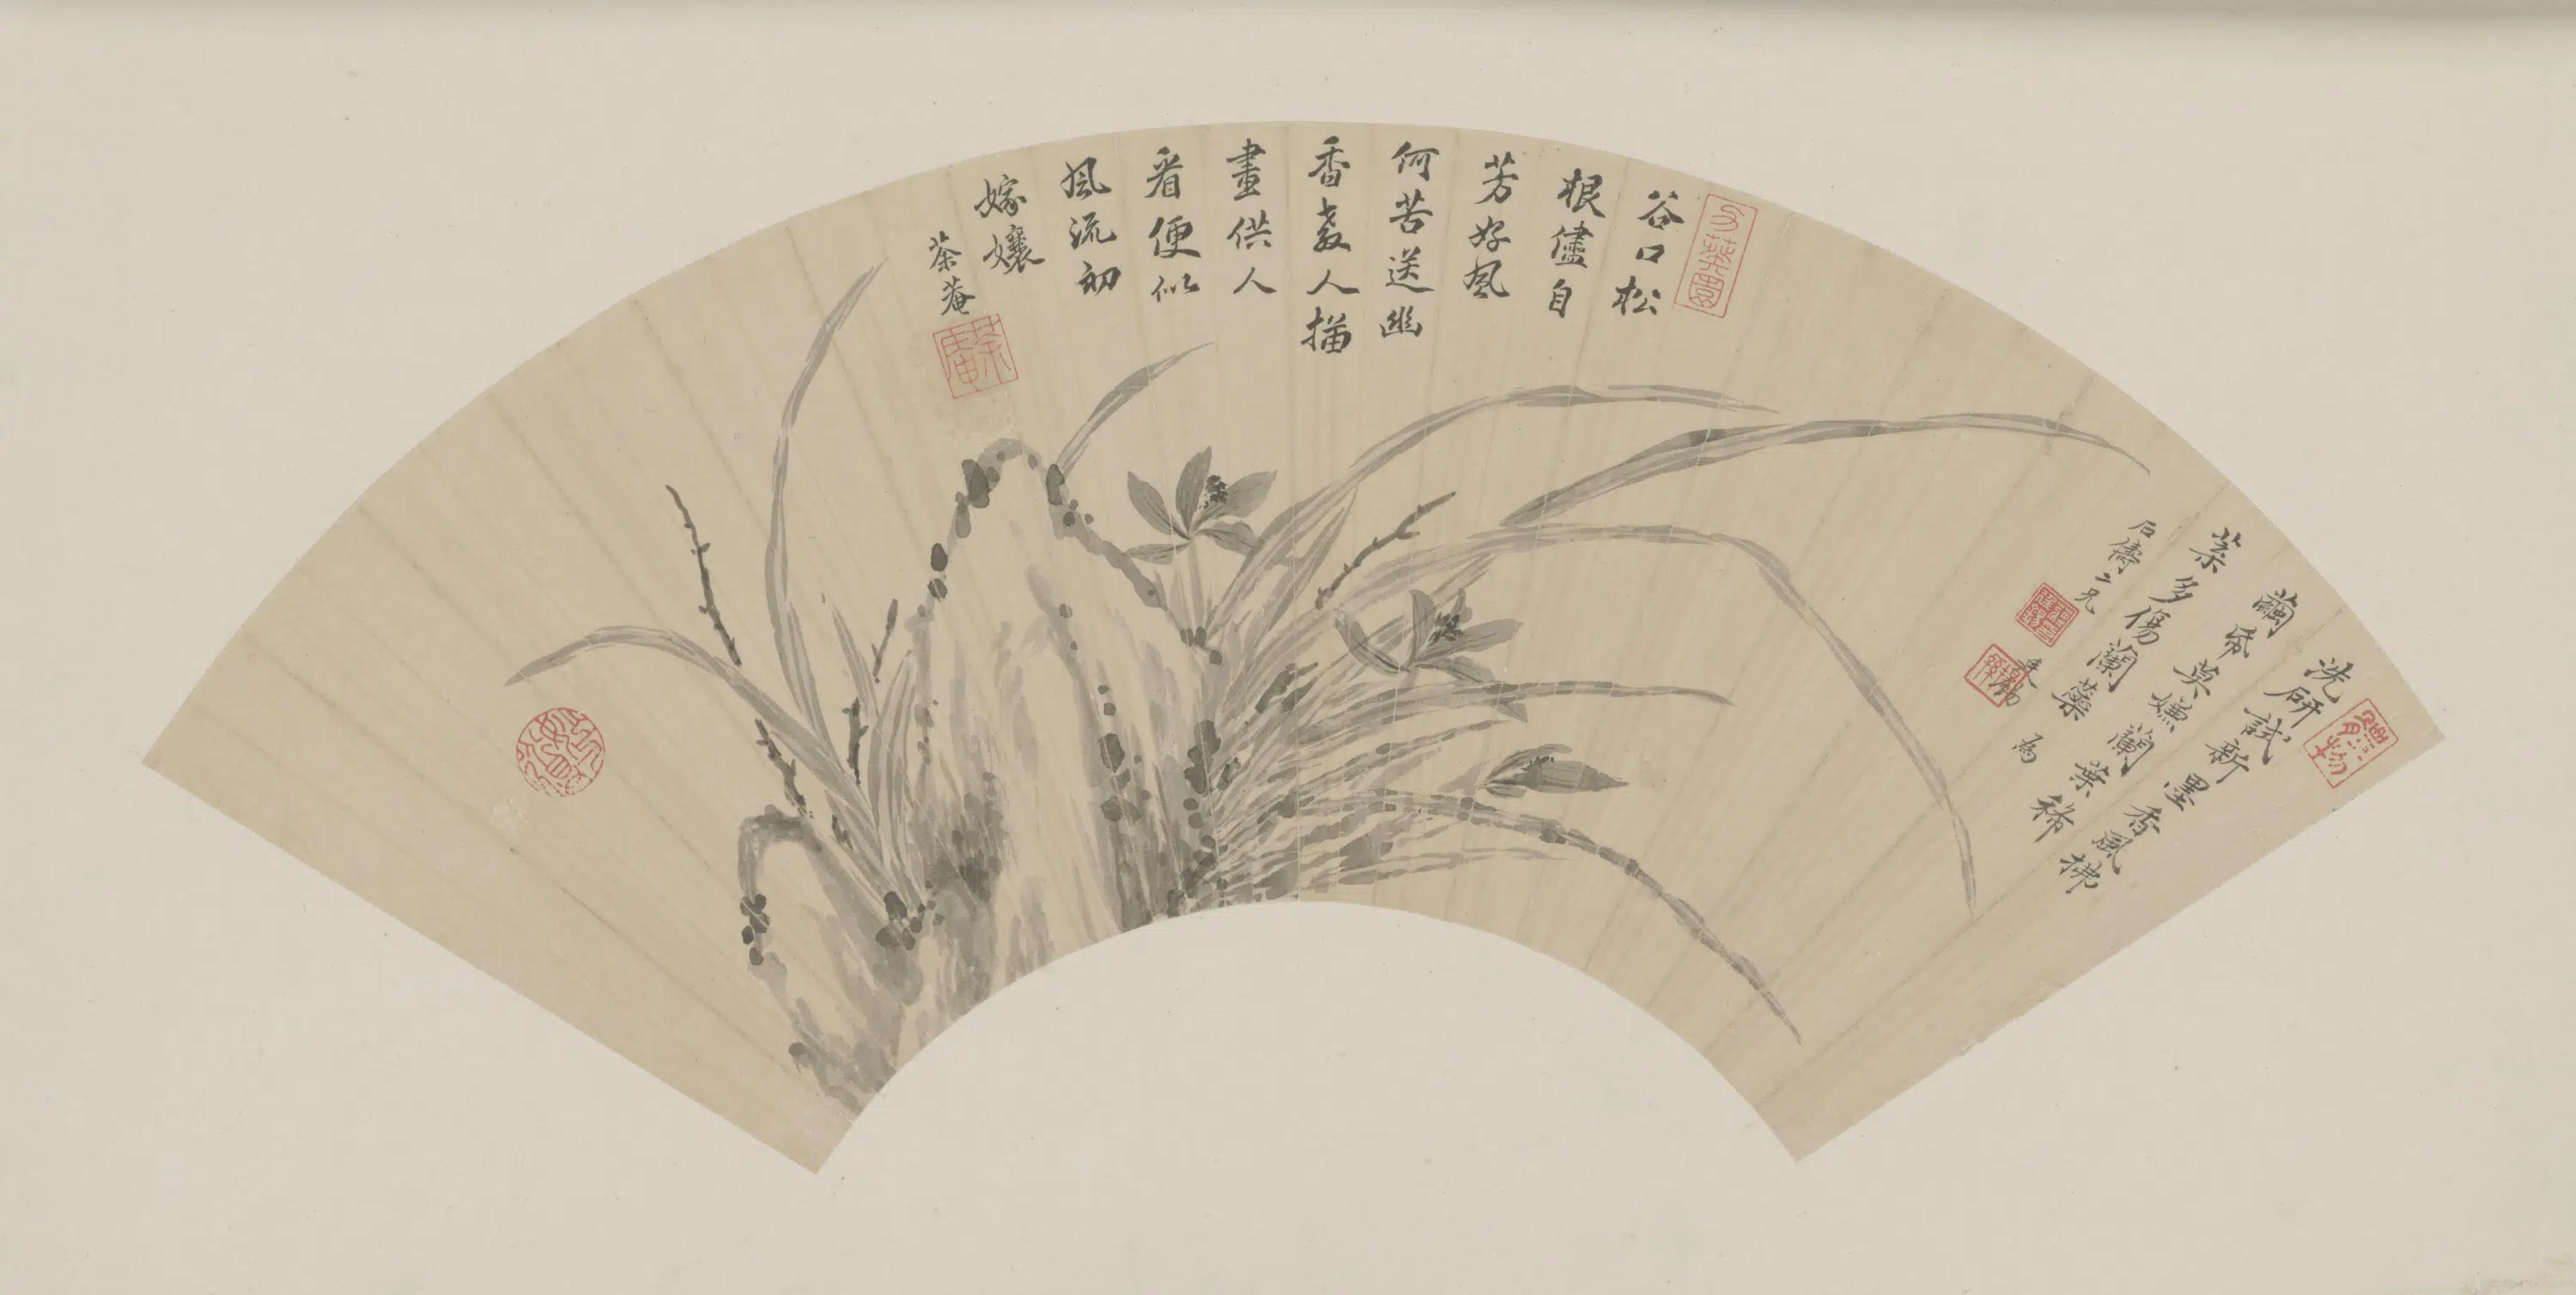 谷口松
根儘自
芳好風
何苦送幽
香教人描
畫供人
看便似
風流初
嫁孃
荼菴
洗研試新墨香風拂
繭帋莫嫌蘭葉稀
葉多傷蘭蘂為
石儕二兄